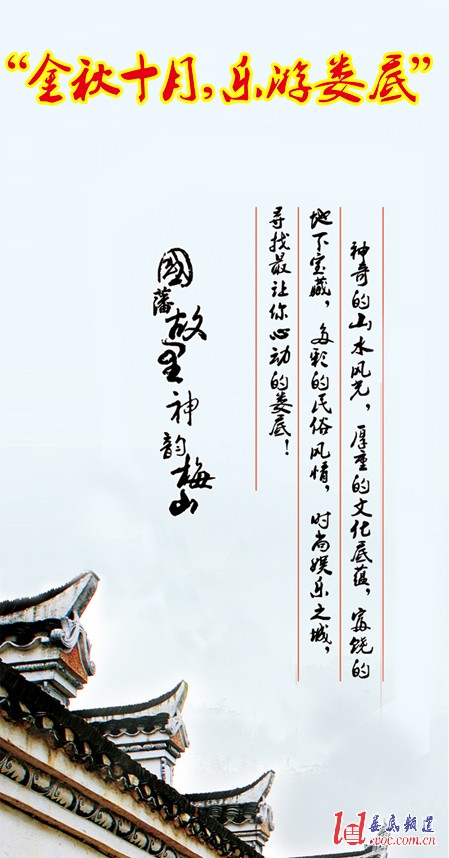 “金秋十月，乐游娄底”
神奇的山水风光，厚重的文化底蕴，富饶的
地下宝藏，多彩的民俗风情，时尚娱乐之城，
寻找最让你心动的娄底！
國藩故里神韵梅山
娄底频道
ld.voc.com.cn